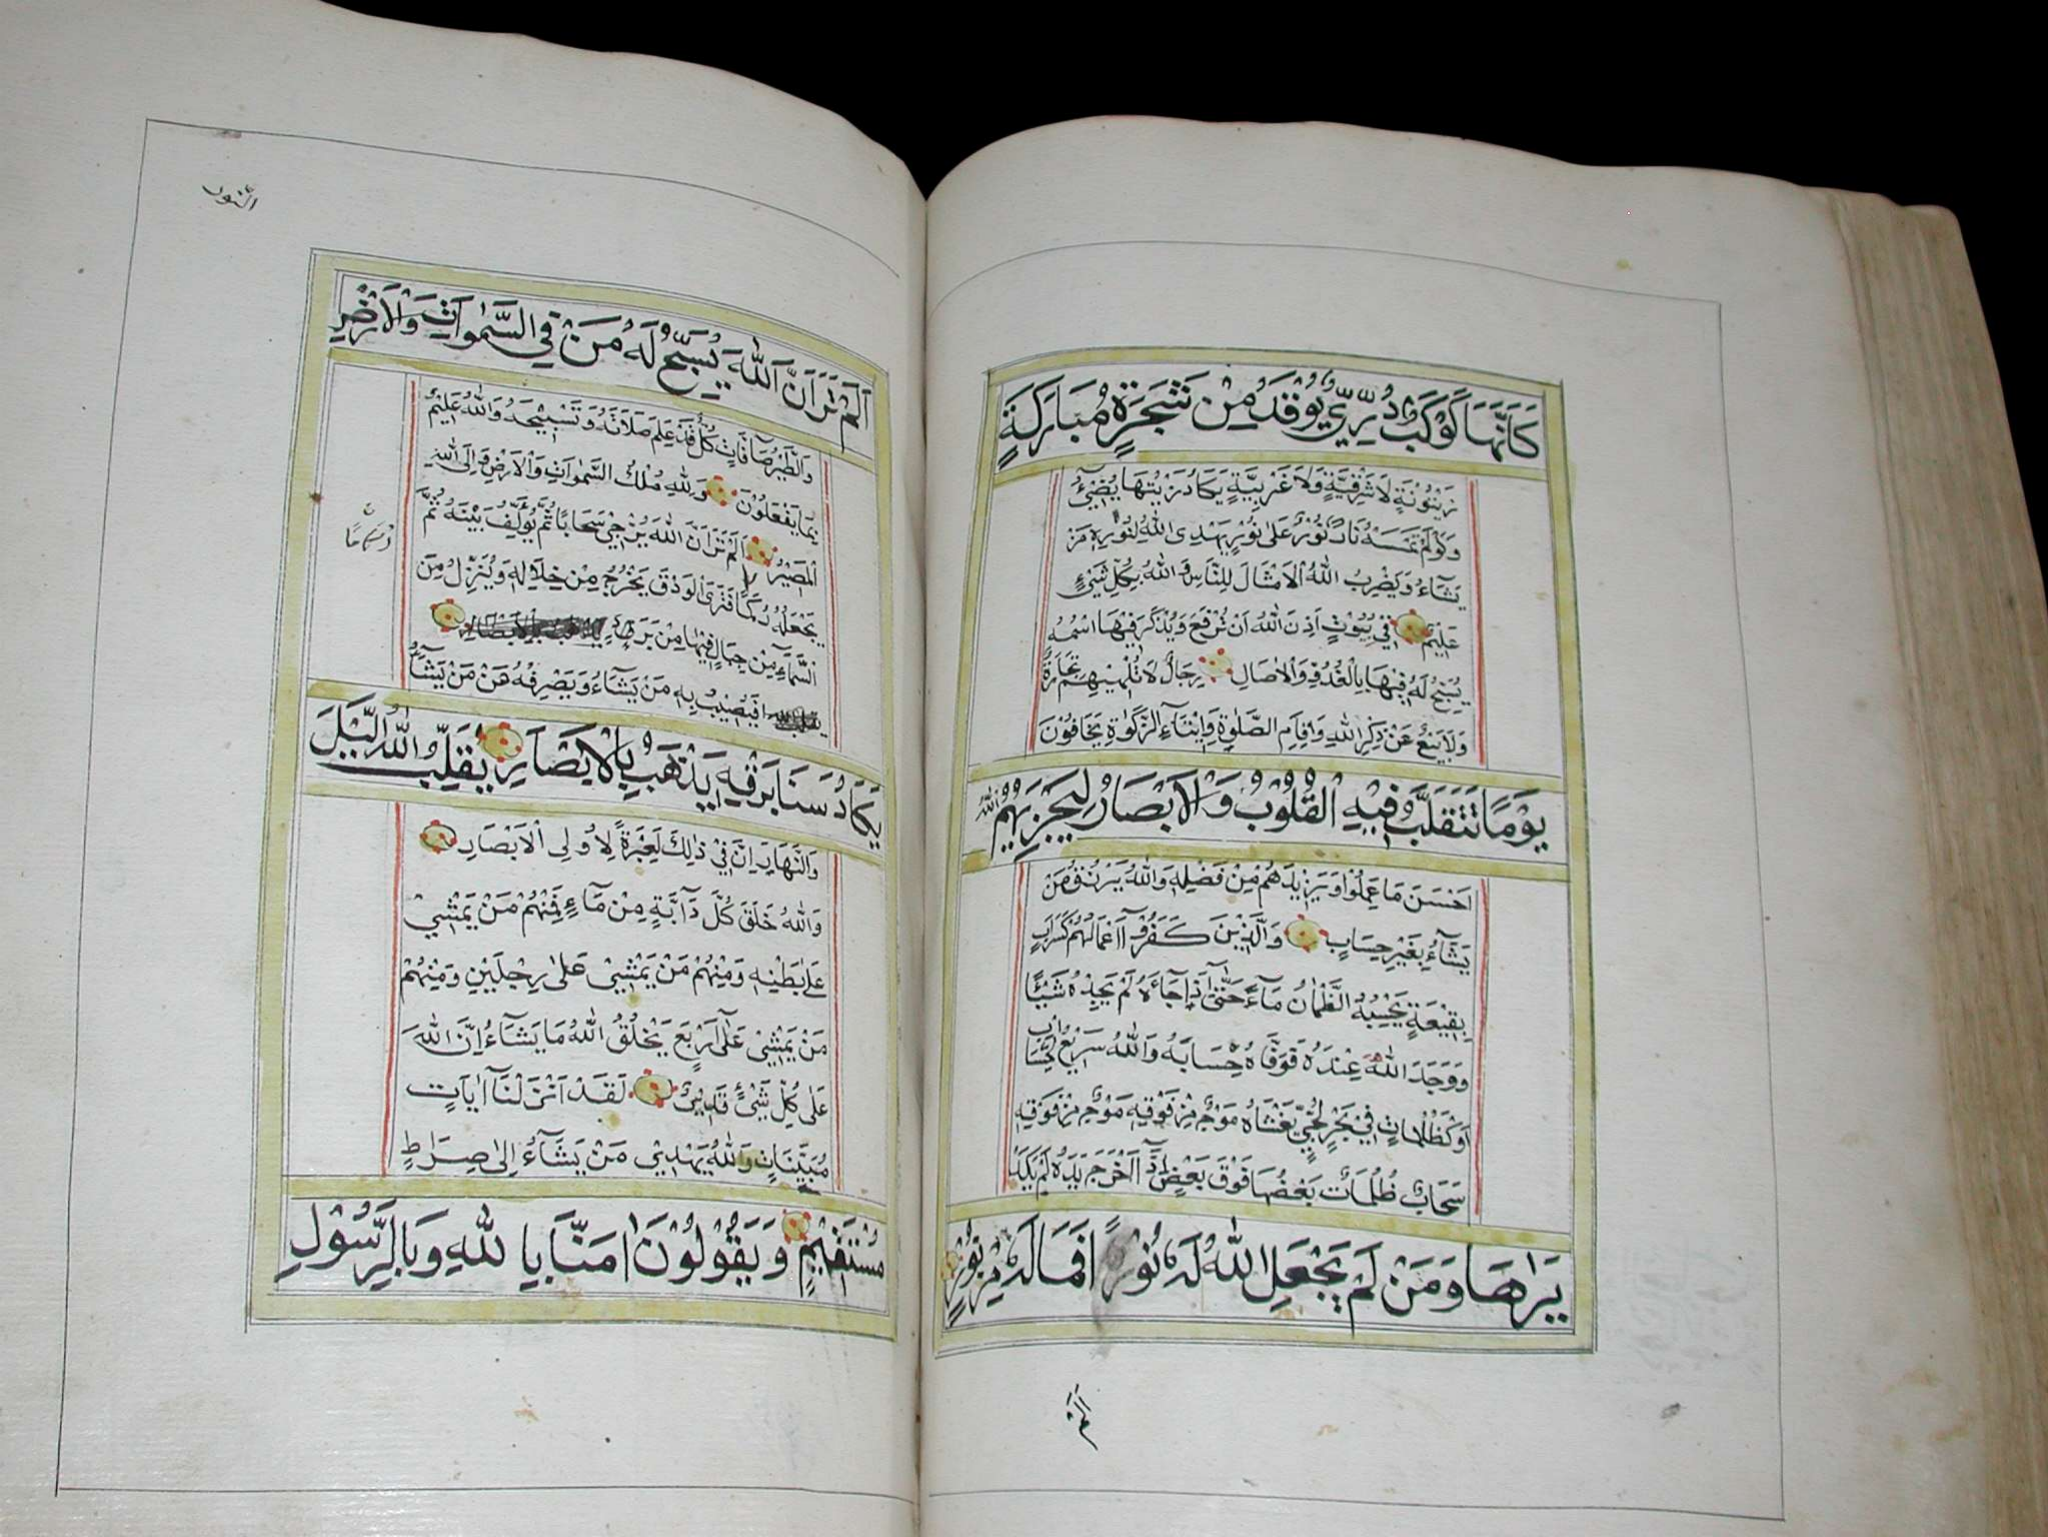 كَاَنَّهَا كَوْكَبٌ دُرِّيٌّ يُوقَدُ مِنْ شَجَرَةٍ مُبَارَكَةٍ
زَيْتُونَةٍ لَا شَرْقِيَّةٍ وَلَا غَرْبِيَّةٍ يَكَادُ زَيْتُهَا يُضِيۤئُ
وَلَوْ لَمْ تَمْسَسْهُ نَارٌ نُورٌ عَلٰى نُورٍ يَهْدِى اللهُ لِنُورِهِ مَنْ
يَشَاۤءُ وَيَضْرِبُ اللهُ الْاَمْثَالَ لِلنَّاسِ وَاللهُ بِكُلِّ شَيْءٍ
عَلِيمٌ فِي بُيُوتٍ اَذِنَ اللهُ اَنْ تُرْفَعَ وَيُذْكَرَ فِيْهَا اسْمُهُ
يُسَبِّحُ لَهُ فِيْهَا بِالْغُدُوِّ وَالْاٰصَالِ رِجَالٌ لَا تُلْهِيْهِمْ تِجَارَةٌ
وَلَا بَيْعٌ عَنْ ذِكْرِ اللهِ وَاِقَامِ الصَّلٰوةِ وَاِيْتَاۤءِ الزَّكٰوةِ يَخَافُوْنَ
يَوْمًا تَتَقَلَّبُ فِيْهِ الْقُلُوْبُ وَالْاَبْصَارُ لِيَجْزِيَهُمُ اللهُ
اَحْسَنَ مَا عَمِلُوْا وَيَزِيْدَهُمْ مِنْ فَضْلِهِ وَاللهُ يَرْزُقُ مَنْ
يَشَاۤءُ بِغَيْرِ حِسَابٍ وَالَّذِيْنَ كَفَرُوْاۤ اَعْمَالُهُمْ كَسَرَابٍ
بِقِيْعَةٍ يَحْسَبُهُ الظَّمْاٰنُ مَاۤءً حَتّٰىۤ اِذَا جَاۤءَهُ لَمْ يَجِدْهُ شَيْئًا
وَوَجَدَ اللهَ عِنْدَهُ فَوَفَّاهُ حِسَابَهُ وَاللهُ سَرِيْعُ الْحِسَابِ
اَوْ كَظُلُمَاتٍ فِيْ بَحْرٍ لُجِّيٍّ يَغْشَاهُ مَوْجٌ مِنْ فَوْقِهِ مَوْجٌ مِنْ فَوْقِهِ
سَحَابٌ ظُلُمَاتٌ بَعْضُهَا فَوْقَ بَعْضٍ اِذَاۤ اَخْرَجَ يَدَهُ لَمْ يَكَدْ
يَرٰاهَا وَمَنْ لَمْ يَجْعَلِ اللهُ لَهُ نُوْرًا فَمَا لَهُ مِنْ نُوْرٍ
اَلَمْ تَرَ
النور
اَلَمْ تَرَ اَنَّ اللهَ يُسَبِّحُ لَهُ مَنْ فِي السَّمٰوَاتِ وَالْاَرْضِ
وَالطَّيْرُ صَاۤفَّاتٍ كُلٌّ قَدْ عَلِمَ صَلَاتَهُ وَتَسْبِيْحَهُ وَاللهُ عَلِيْمٌ
بِمَا يَفْعَلُوْنَ وَلِلّٰهِ مُلْكُ السَّمٰوَاتِ وَالْاَرْضِ وَاِلَى اللهِ
الْمَصِيْرُ اَلَمْ تَرَ اَنَّ اللهَ يُزْجِيْ سَحَابًا ثُمَّ يُؤَلِّفُ بَيْنَهُ ثُمَّ
يَجْعَلُهُ رُكَامًا فَتَرَى الْوَدْقَ يَخْرُجُ مِنْ خِلَالِهِ وَيُنَزِّلُ مِنَ
السَّمَاۤءِ مِنْ جِبَالٍ فِيْهَا مِنْ بَرَدٍ
فَيُصِيْبُ بِهِ مَنْ يَشَاۤءُ وَيَصْرِفُهُ عَنْ مَنْ يَشَاۤءُ
يَكَادُ سَنَا بَرْقِهِ يَذْهَبُ بِالْاَبْصَارِ يُقَلِّبُ اللهُ الَّيْلَ
وَالنَّهَارَ اِنَّ فِيْ ذٰلِكَ لَعِبْرَةً لِاُولِى الْاَبْصَارِ
وَاللهُ خَلَقَ كُلَّ دَاۤبَّةٍ مِنْ مَاۤءٍ فَمِنْهُمْ مَنْ يَمْشِيْ
عَلٰى بَطْنِهِ وَمِنْهُمْ مَنْ يَمْشِيْ عَلٰى رِجْلَيْنِ وَمِنْهُمْ
مَنْ يَمْشِيْ عَلٰىۤ اَرْبَعٍ يَخْلُقُ اللهُ مَا يَشَاۤءُ اِنَّ اللهَ
عَلٰى كُلِّ شَيْءٍ قَدِيْرٌ لَقَدْ اَنْزَلْنَاۤ اٰيَاتٍ
مُبَيِّنَاتٍ وَاللهُ يَهْدِيْ مَنْ يَشَاۤءُ اِلٰى صِرَاطٍ
مُسْتَقِيْمٍ وَيَقُوْلُوْنَ اٰمَنَّا بِاللهِ وَبِالرَّسُوْلِ